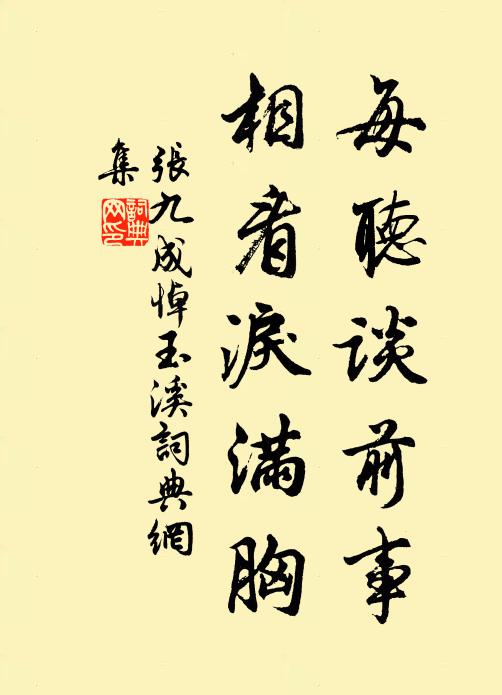 每聽談前事
相看淚滿胸
張九成悼玉溪詞典網
集
詞典網印